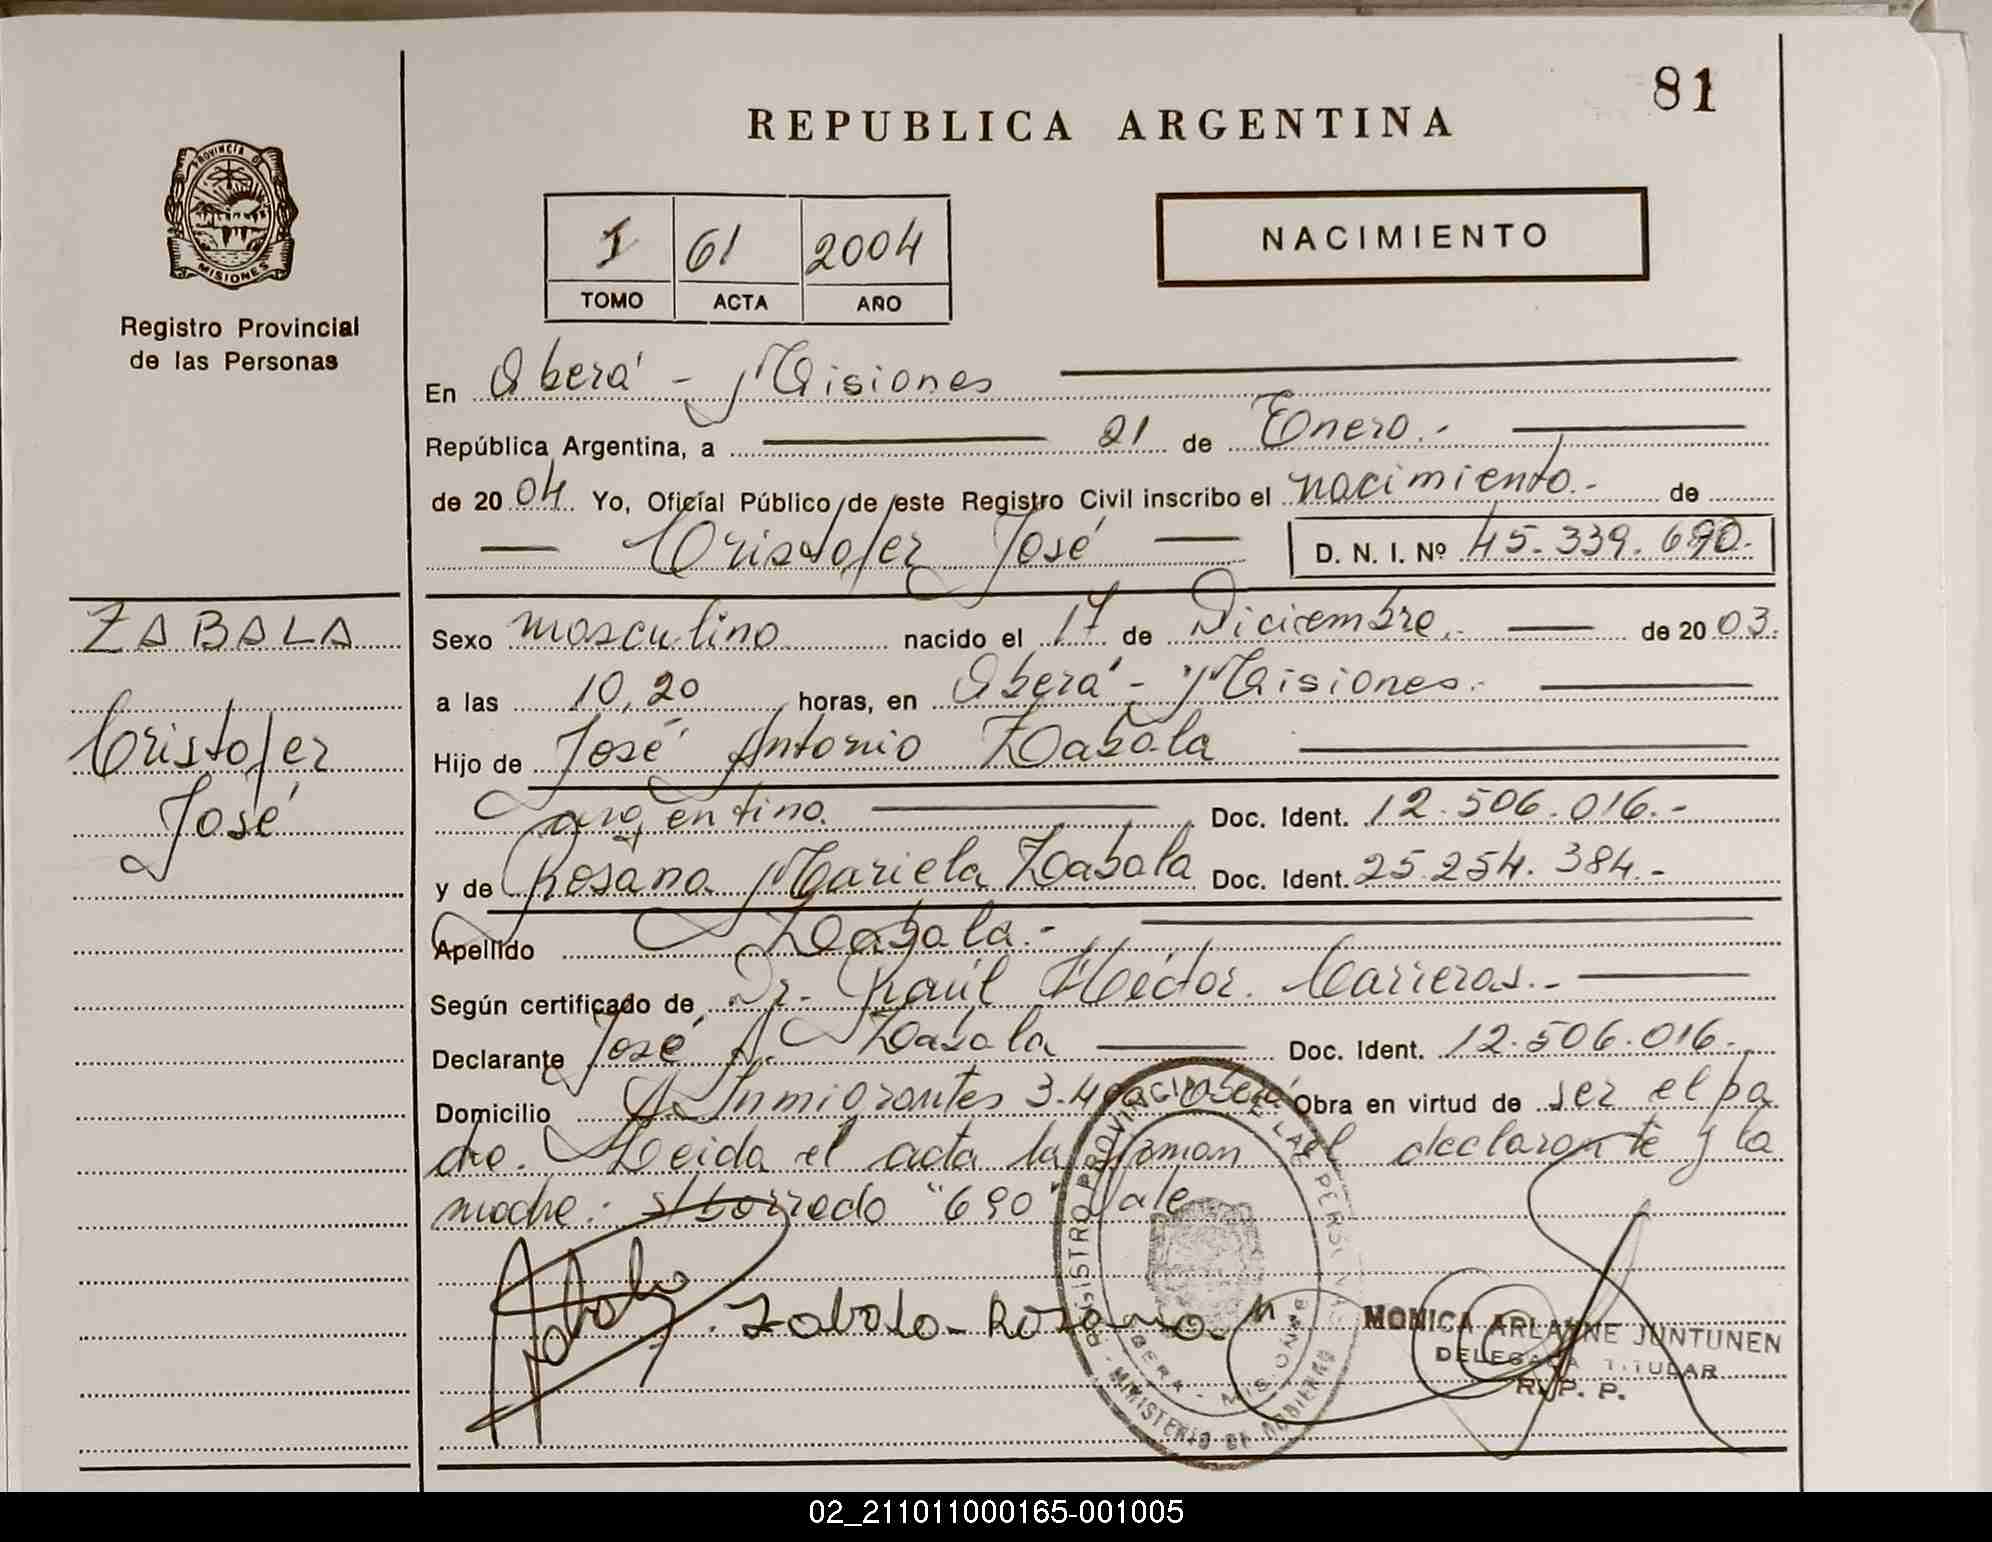 81
REPUBLICA ARGENTINA
PROVINCIA DE
MISIONES
Registro Provincial
de las Personas
I 61 2004
TOMO ACTA AÑO
NACIMIENTO
En Oberá - Misiones
República Argentina, a 21 de Enero.-
de 2004. Yo, Oficial Público de este Registro Civil inscribo el nacimiento.- de
Cristofer José D. N. I. Nº 45.339.690.-
ZABALA
Cristofer
José
Sexo masculino nacido el 17 de Diciembre.- de 2003.
a las 10,20 horas, en Oberá - Misiones.-
Hijo de José Antonio Zabala
argentino. Doc. Ident. 12.506.016.-
y de Rosana Mariela Zabala Doc. Ident. 25.254.384.-
Apellido Zabala.-
Según certificado de Dr. Raúl Héctor Carreras.-
Declarante José A. Zabala Doc. Ident. 12.506.016.-
Domicilio Inmigrantes Oberá Obra en virtud de ser el pa
dre. Leida el acta la firman el declarante y la
madre.- s/borrado "690" Vale
Zabala Rosana M
REGISTRO PROVINCIAL DE LAS PERSONAS
OBERA - MISIONES
MINISTERIO DE GOBIERNO
MONICA ARLANNE JUNTUNEN
DELEGADA TITULAR
R. P. P.
02_211011000165-001005